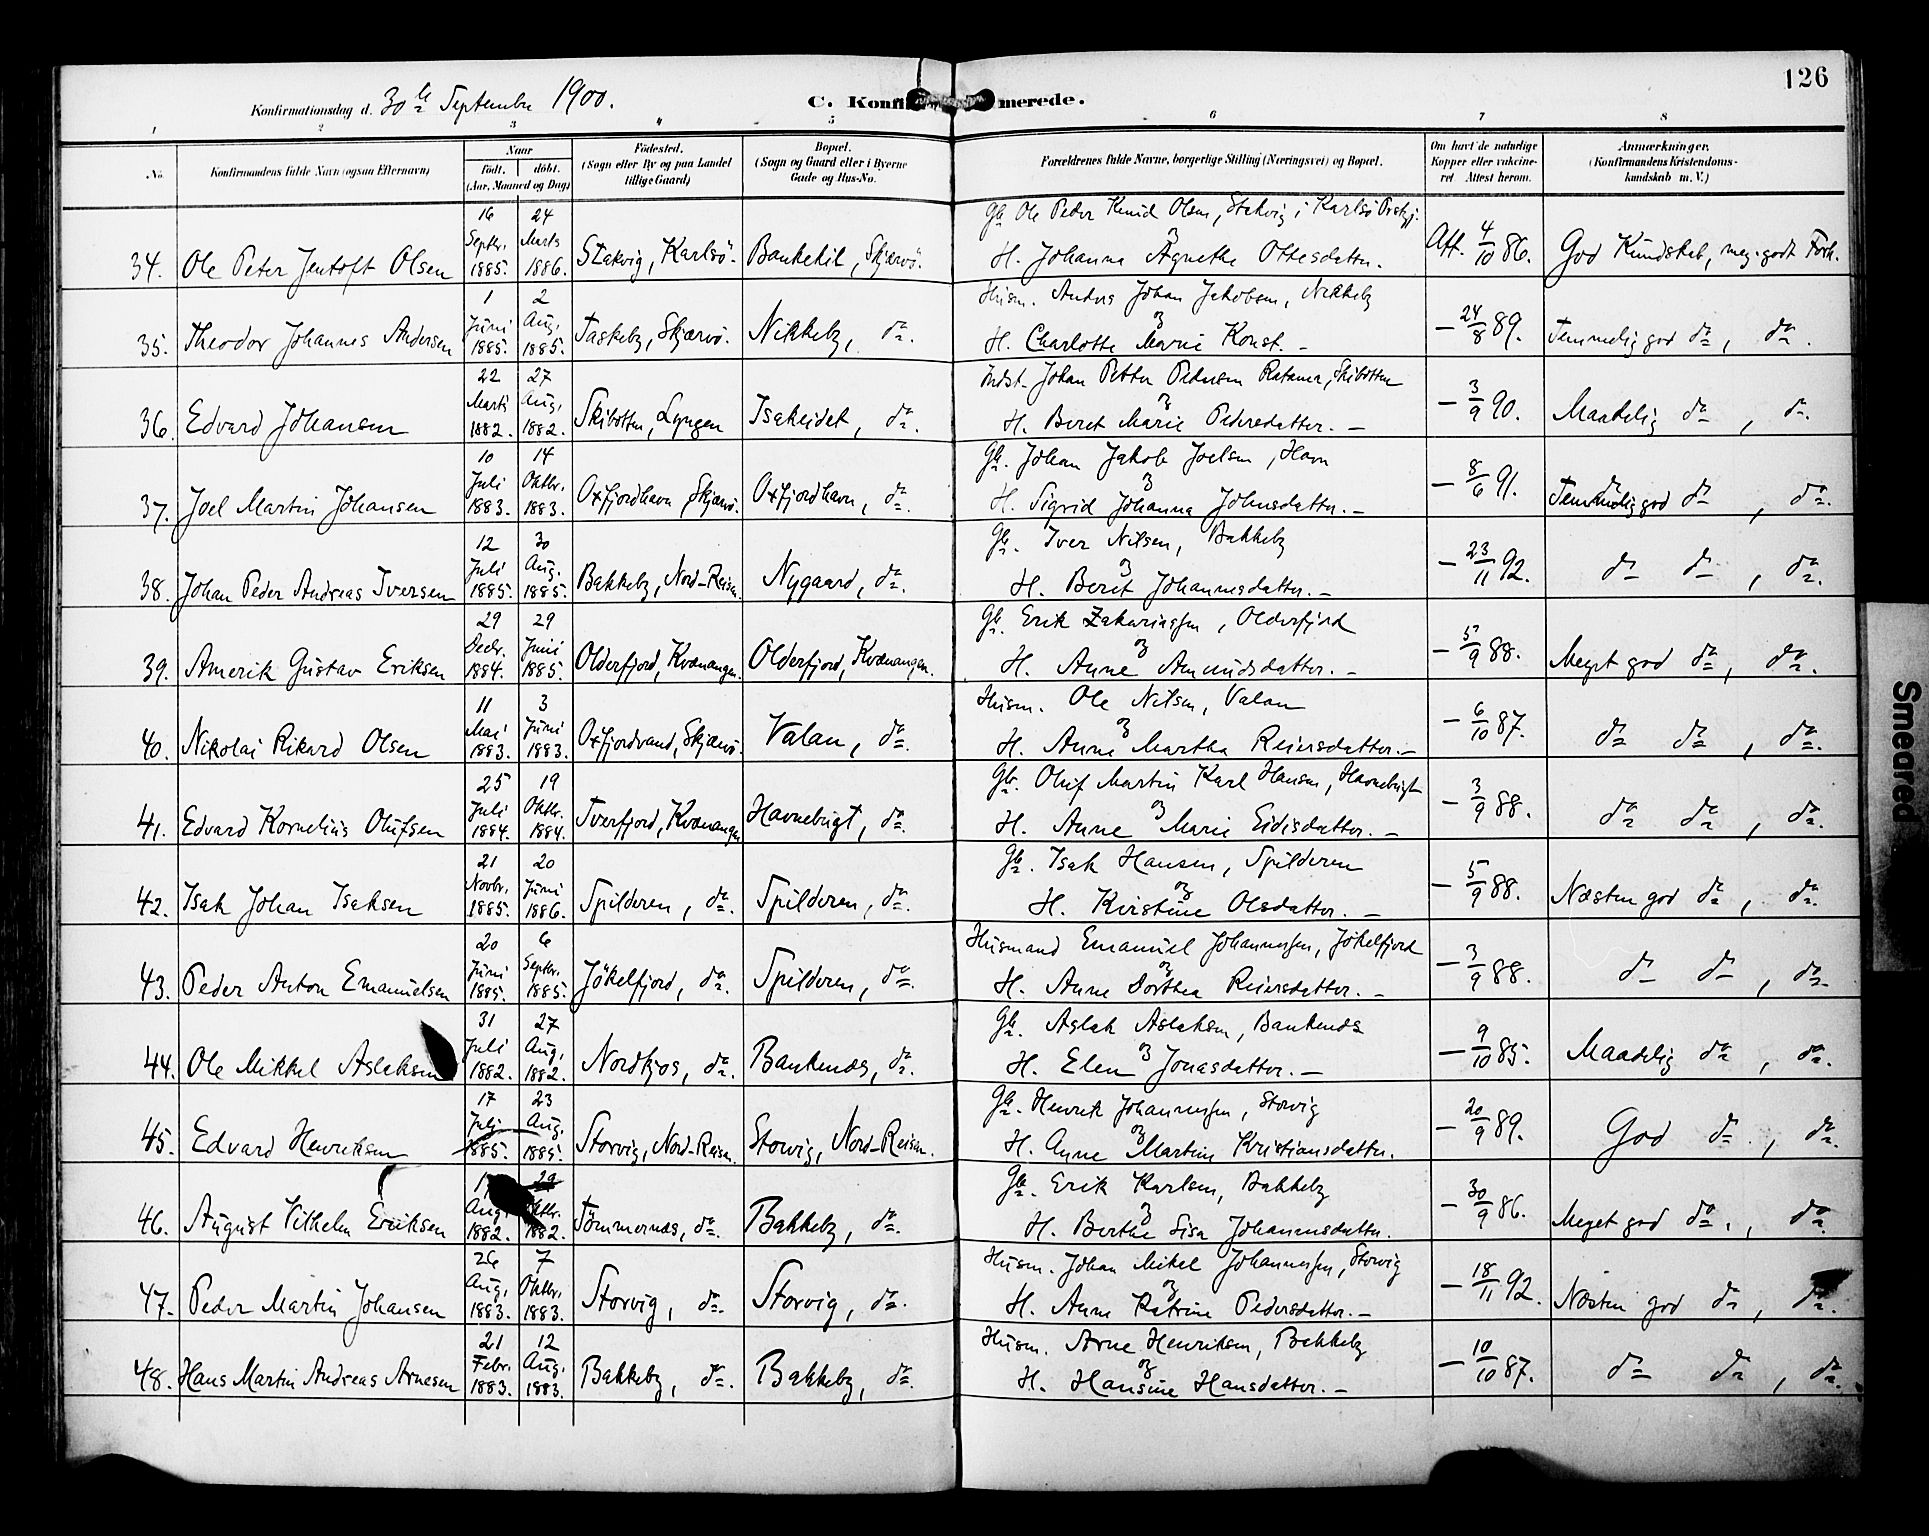 126
Konfirmationsdag d. 30te September 1900.
C. Konfi merede.
1 2 3 4 5 6 7 8
No. Konfirmandens fulde Navn (ogsaa Efternavn) Naar Födt. döbt. (Aar, Maaned og Dag) Födested. (Sogn eller By og paa Landet tillige Gaard) Bopæl. (Sogn og Gaard eller i Byerne Gade og Hus-No. Forældrenes fulde Navne, borgerlige Stilling (Næringsvei) og Bopæl. Om havt de naturlige Kopper eller vaccineret Attest herom. Anmærkninger. (Konfirmandens Kristendomskundskab m. V.)
34. Ole Peter Jentoft Olsen 16 Septbr. 1885. 24 Marts 1886. Stakvig, Karlsö. Bankekil, Skjærvö. Gbr. Ole Peder Knud Olsen, Stakvig i Karlsö Prstgj. og H. Johanna Agnethe Ottesdatter. Att. 4/10 86. God Kundskab, meg. godt Forh.
35. Theodor Johannes Andersen 1 Juni 1885. 2 Aug. 1885. Taskeby, Skjærvö. Nikkeby, do. Husm. Anders Johan Jakobsen, Nikkeby og H. Charlotte Marie Konst. – – 24/8 89. Temmelig god do, do.
36. Edvard Johansen 22 Marts 1882. 27 Aug. 1882. Skibotten, Lyngen Isakeidet, do. Indst. Johan Petter Pedersen Ratama, Skibotten og H. Beret Marie Pedersdatter. – – 3/9 90. Maadelig do, do.
37. Joel Martin Johansen 10 Juli 1883. 14 Oktbr. 1883. Oxfjordhavn, Skjærvö. Oxfjordhavn, do. Gbr. Johan Jakob Joelsen, Havn og H. Sigrid Johanna Johnsdatter. – – 8/6 91. Temmelig god do, do.
38. Johan Peder Andreas Iversen 12 Juli 1885. 30 Aug. 1885. Bakkeby, Nord-Reisen. Nygaard, do. Gbr. Iver Nilsen, Bakkeby og H. Beret Johannesdatter. – – 23/11 92. do do, do.
39. Amerik Gustav Eriksen 29 Decbr. 1884. 29 Juni 1885. Olderfjord, Kvænangen. Olderfjord, Kvænangen. Gbr. Erik Zakariassen, Olderfjord og H. Anne Amundsdatter. – – 5/9 88. Meget god do, do.
40. Nikolai Rikard Olsen 11 Mai 1883. 3 Juni 1883. Oxfjordvand, Skjærvö. Valan, do. Husm. Ole Nilsen, Valan og H. Anne Martha Reiersdatter. – – 6/10 87. do do, do.
41. Edvard Kornelius Olufsen 25 Juli 1884. 19 Oktbr. 1884. Tverfjord, Kvænangen Havnebugt, do. Gbr. Oluf Martin Karl Hansen, Havnebugt og H. Anne Marie Eidisdatter. – – 3/9 88. do do, do.
42. Isak Johan Isaksen 21 Novbr. 1885. 20 Juni 1886. Spilderen, do. Spilderen, do. Gbr. Isak Hansen, Spilderen og H. Kirstine Olsdatter. – – 5/9 88. Næsten god do, do.
43. Peder Anton Emanuelsen 20 Juni 1885. 6 Septbr. 1885. Jökelfjord, do. Spilderen, do. Husmand Emanuel Johannessen, Jökelfjord og H. Anne Dorthea Reiersdatter. – – 3/9 88. do do, do.
44. Ole Mikkel Aslaksen 31 Juli 1882. 27 Aug. 1882. Nordkjos, do. Bankenes, do. Gbr. Aslak Aslaksen, Bankenes og H. Elen Jonasdatter. – – 9/10 85. Maadelig do, do.
45. Edvard Henriksen 17 Juli 1885. 23 Aug. 1885. Storvig, Nord-Reisen. Storvig, Nord-Reisen. Gbr. Henrik Johannessen, Storvig og H. Anne Martine Kristiansdatter. – 20/9 89. God do, do.
46. August Vilhelm Eriksen Aug. 1882. 29 Oktbr. 1882. Tömmernes, do. Bakkeby, do. Gbr. Erik Karlsen, Bakkeby og H. Berthe Lisa Johannesdatter. – 30/9 86. Meget god do, do.
47. Peder Martin Johansen 26 Aug. 1883. 7 Oktbr. 1883. Storvig, do. Storvig, do. Husm. Johan Mikel Johannessen, Storvig og H. Anne Katrine Pedersdatter. – – 18/11 92. Næsten god do, do.
48. Hans Martin Andreas Arnesen 21 Febr. 1883. 12 Aug. 1883. Bakkeby, do. Bakkeby, do. Husm. Arne Henriksen, Bakkeby og H. Hansine Hansdatter. – – 10/10 87. do do, do.
Smeared